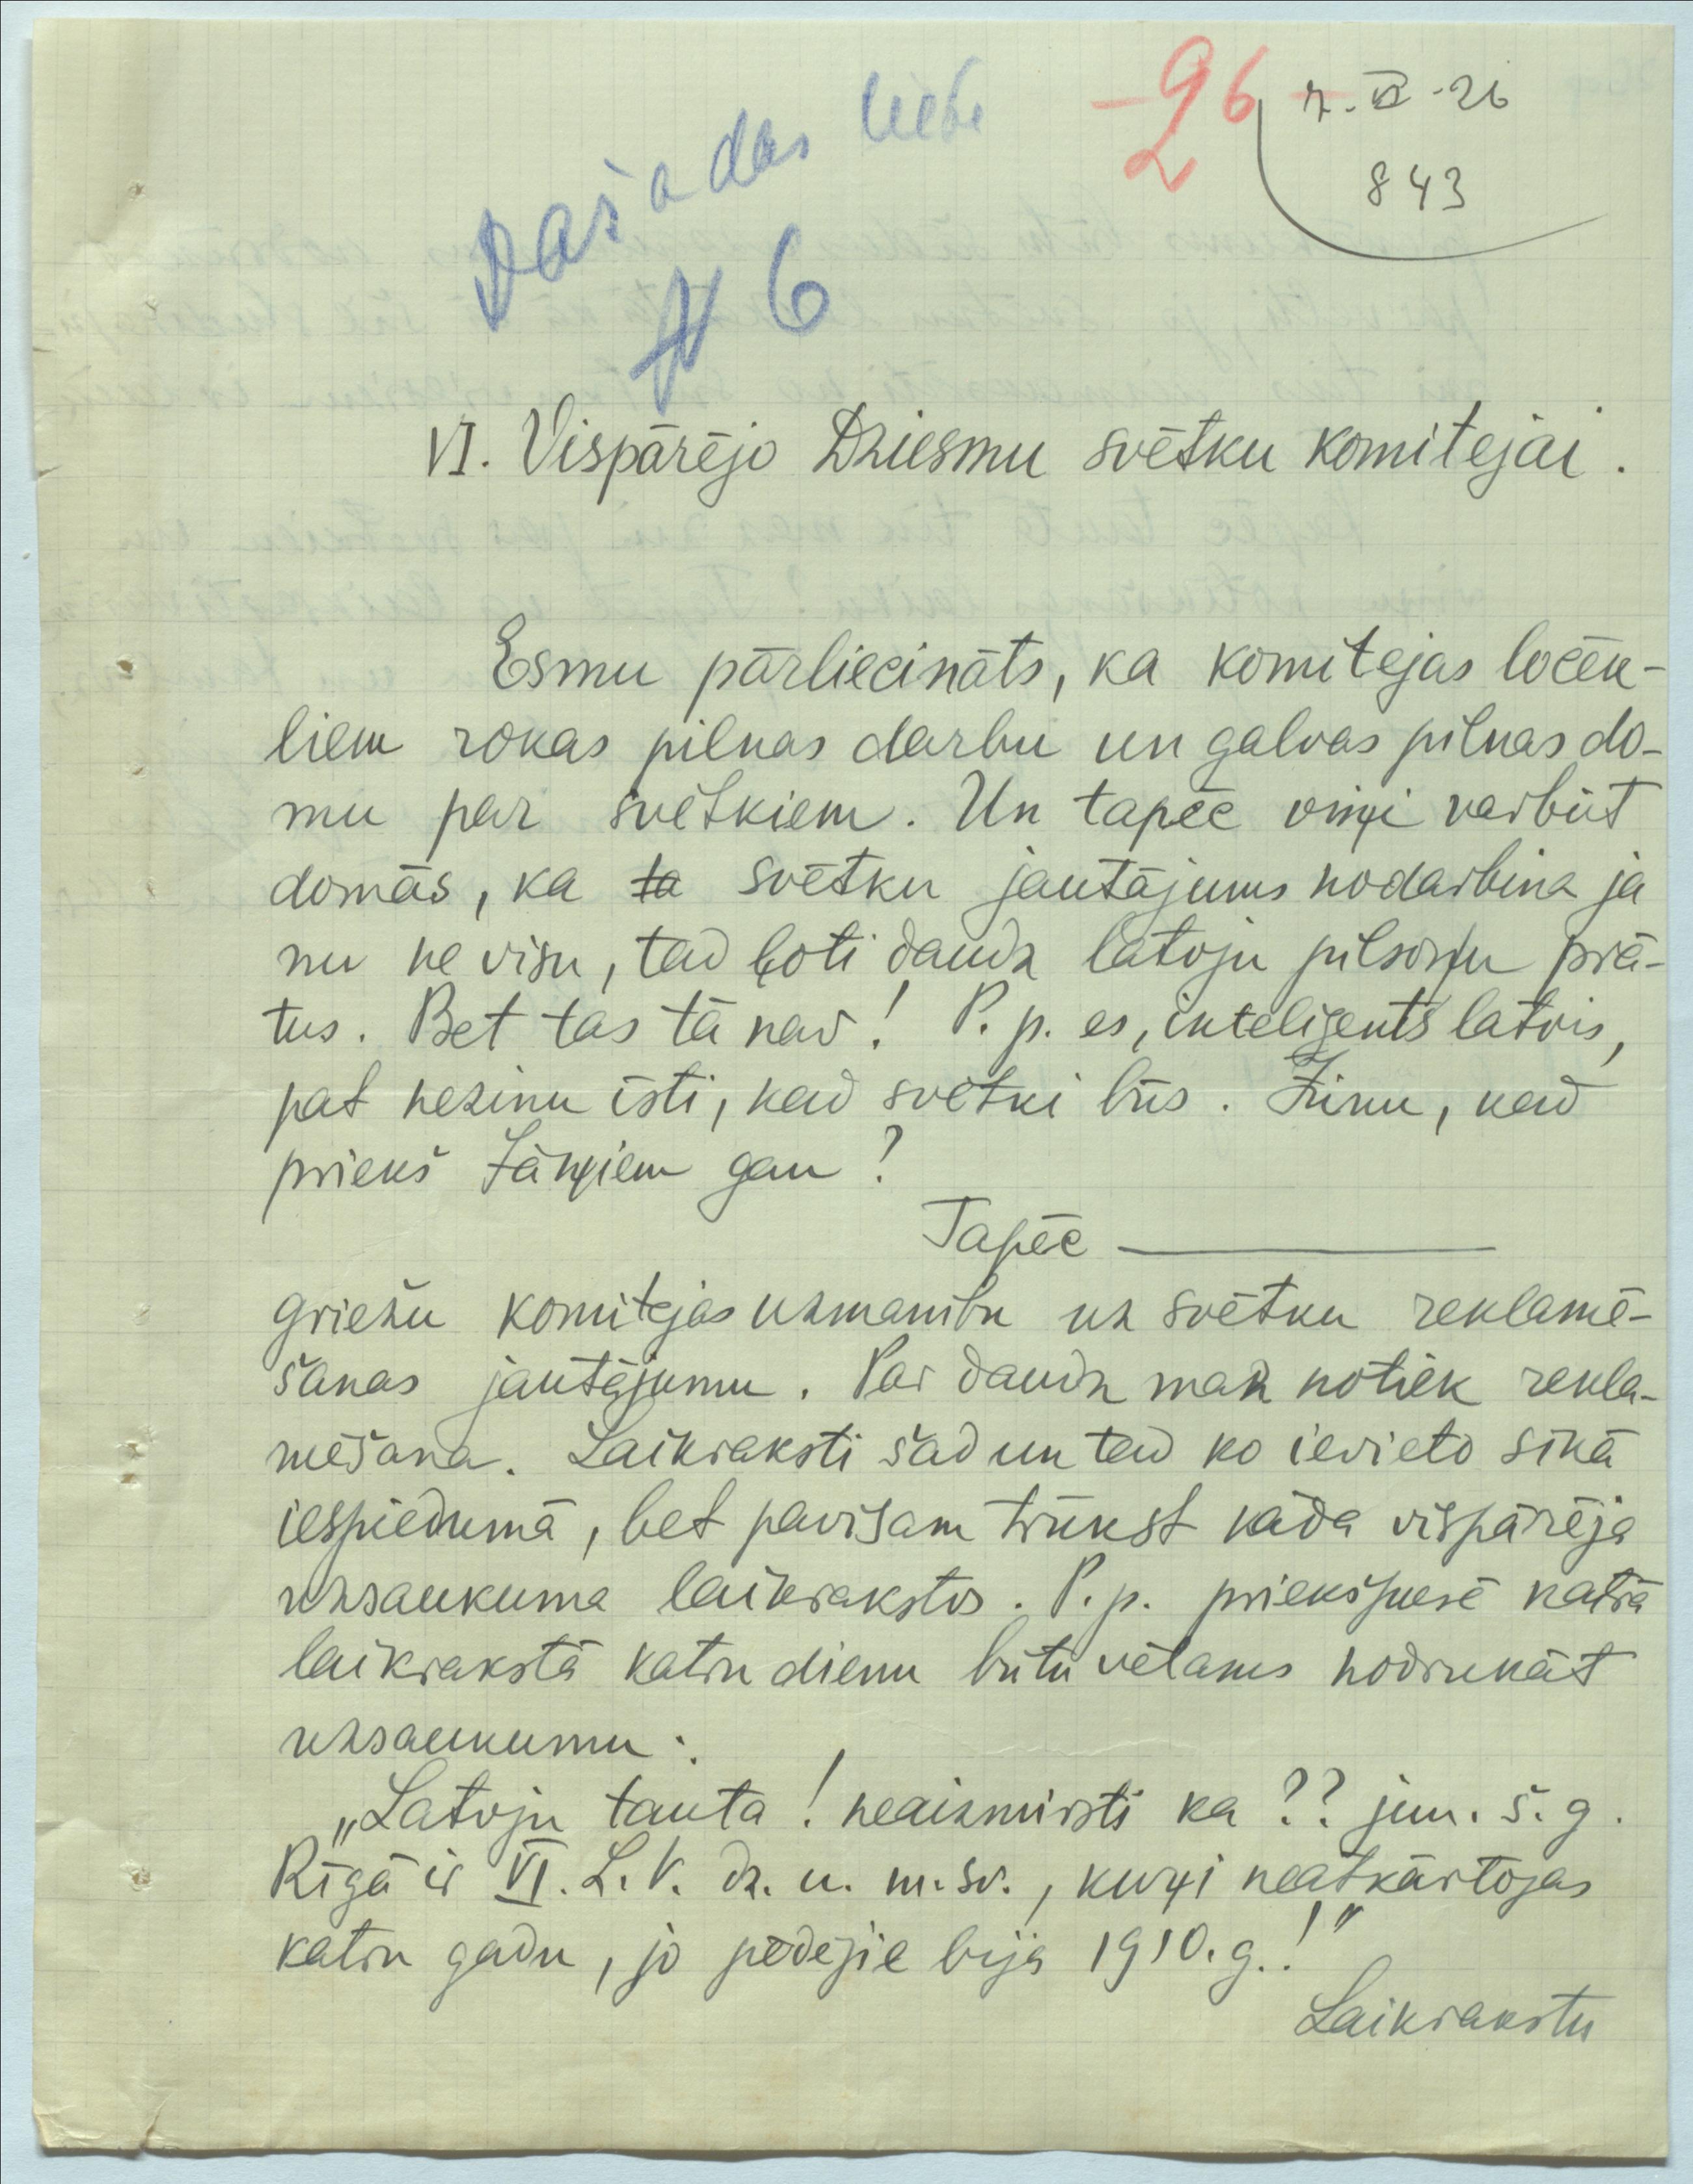 Dažadas lietas
-96-
2
7. VI -26
843
№ 6
VI. Vispārējo Dziesmu svētku komitejai.
Esmu pārliecināts, ka komitejas locēk-
liem rokas pilnas darbu un galvas pilnas do-
mu par svētkiem. Un tapēc viņi varbūt
domās, ka ta svētku jautājums nodarbina ja
nu ne visu, tad ļoti daudz latvju pilsoņu prā-
tus. Bet tas tā nav! P. p. es, inteliģents latvis,
pat nezinu īsti, kad svētki būs. Zinu, kad
prieks Jāņiem gan?
Tapēc
griežu komitejas uzmanību uz svētku reklamē-
šanas jautājumu. Par daudz maz notiek rekla-
mēšana. Laikraksti šad un tad ko ievieto sīkā
iespiedumā, bet pavisam trūkst kāda vispārēja
uzsaukuma laikrakstos. P. p. priekšpusē katrā
laikrakstā katru dienu būtu vēlams nodrukāt
uzsaukumu:
„Latvju tauta! neaizmirsti ka ?? jun. š. g.
Rīgā ir VI. L. V. dz. u. m. sv., kuŗi neatkārtojas
katru gadu, jo pēdējie bija 1910. g.!"
Laikrakstu